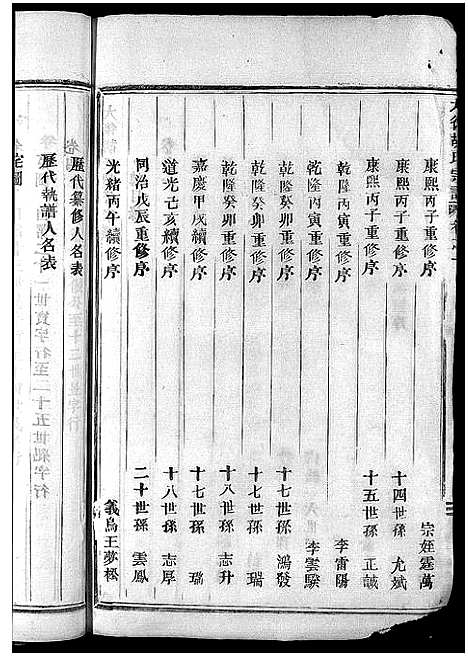 康熙丙子重修序 宗姪霆萬
康熙丙子重修序 十四世孫 尤斌
康熙丙子重修序 十五世孫 正誠
乾隆丙寅重修序 李雷陽
乾隆丙寅重修序 李雲驥
乾隆癸卯重修序 十七世孫 鴻發
乾隆癸卯重修序 十七世孫 瑞
乾隆癸卯重修序 十八世孫 志升
嘉慶甲戌續修序 十七世孫 瑞
道光己亥續修序 十八世孫 志厚
同治戊辰重修序 二十世孫 雲鳳
光緒丙午續修序 義烏王夢松
歷代纂修人名表
歷代執譜人名表